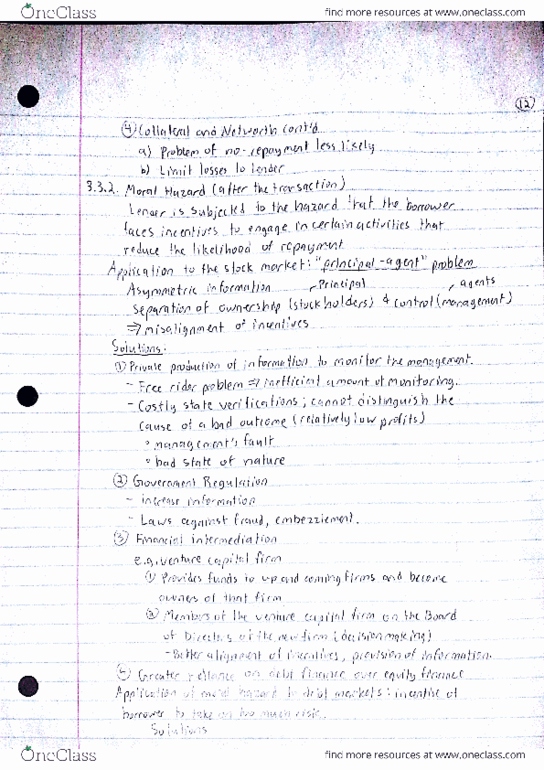 OneClass
find more resources at www.oneclass.com
12
④ Collateral and Networth cont'd
a) Problem of no-repayment less likely
b) Limit losses to lender
3.3.2. Moral Hazard (after the transaction)
Lender is subjected to the hazard that the borrower
faces incentives to engage in certain activities that
reduce the likelihood of repayment
Application to the stock market: "principal-agent" problem
Asymmetric information Principal agents
separation of ownership (stockholders) & control (management)
⇒ misalignment of incentives
Solutions:
① Private production of information to monitor the management.
- Free rider problem ⇒ inefficient amount of monitoring.
- Costly state verifications; cannot distinguish the
cause of a bad outcome (relatively low profits)
° management's fault
° bad state of nature
② Government Regulation
- increase information
- Laws against fraud, embezziement.
③ Financial intermediation
e.g. venture capital firm
① Provides funds to up and coming firms and become
owners of that firm
② Members of the venture capital firm on the Board
of Directors of the new firm (decision making)
- Better alignment of incentives, provision of information.
④ Greater reliance on debt finance over equity finance
Application of moral hazard to debt markets: incentive of
borrower to take on too much risk.
Solutions
OneClass
find more resources at www.oneclass.com